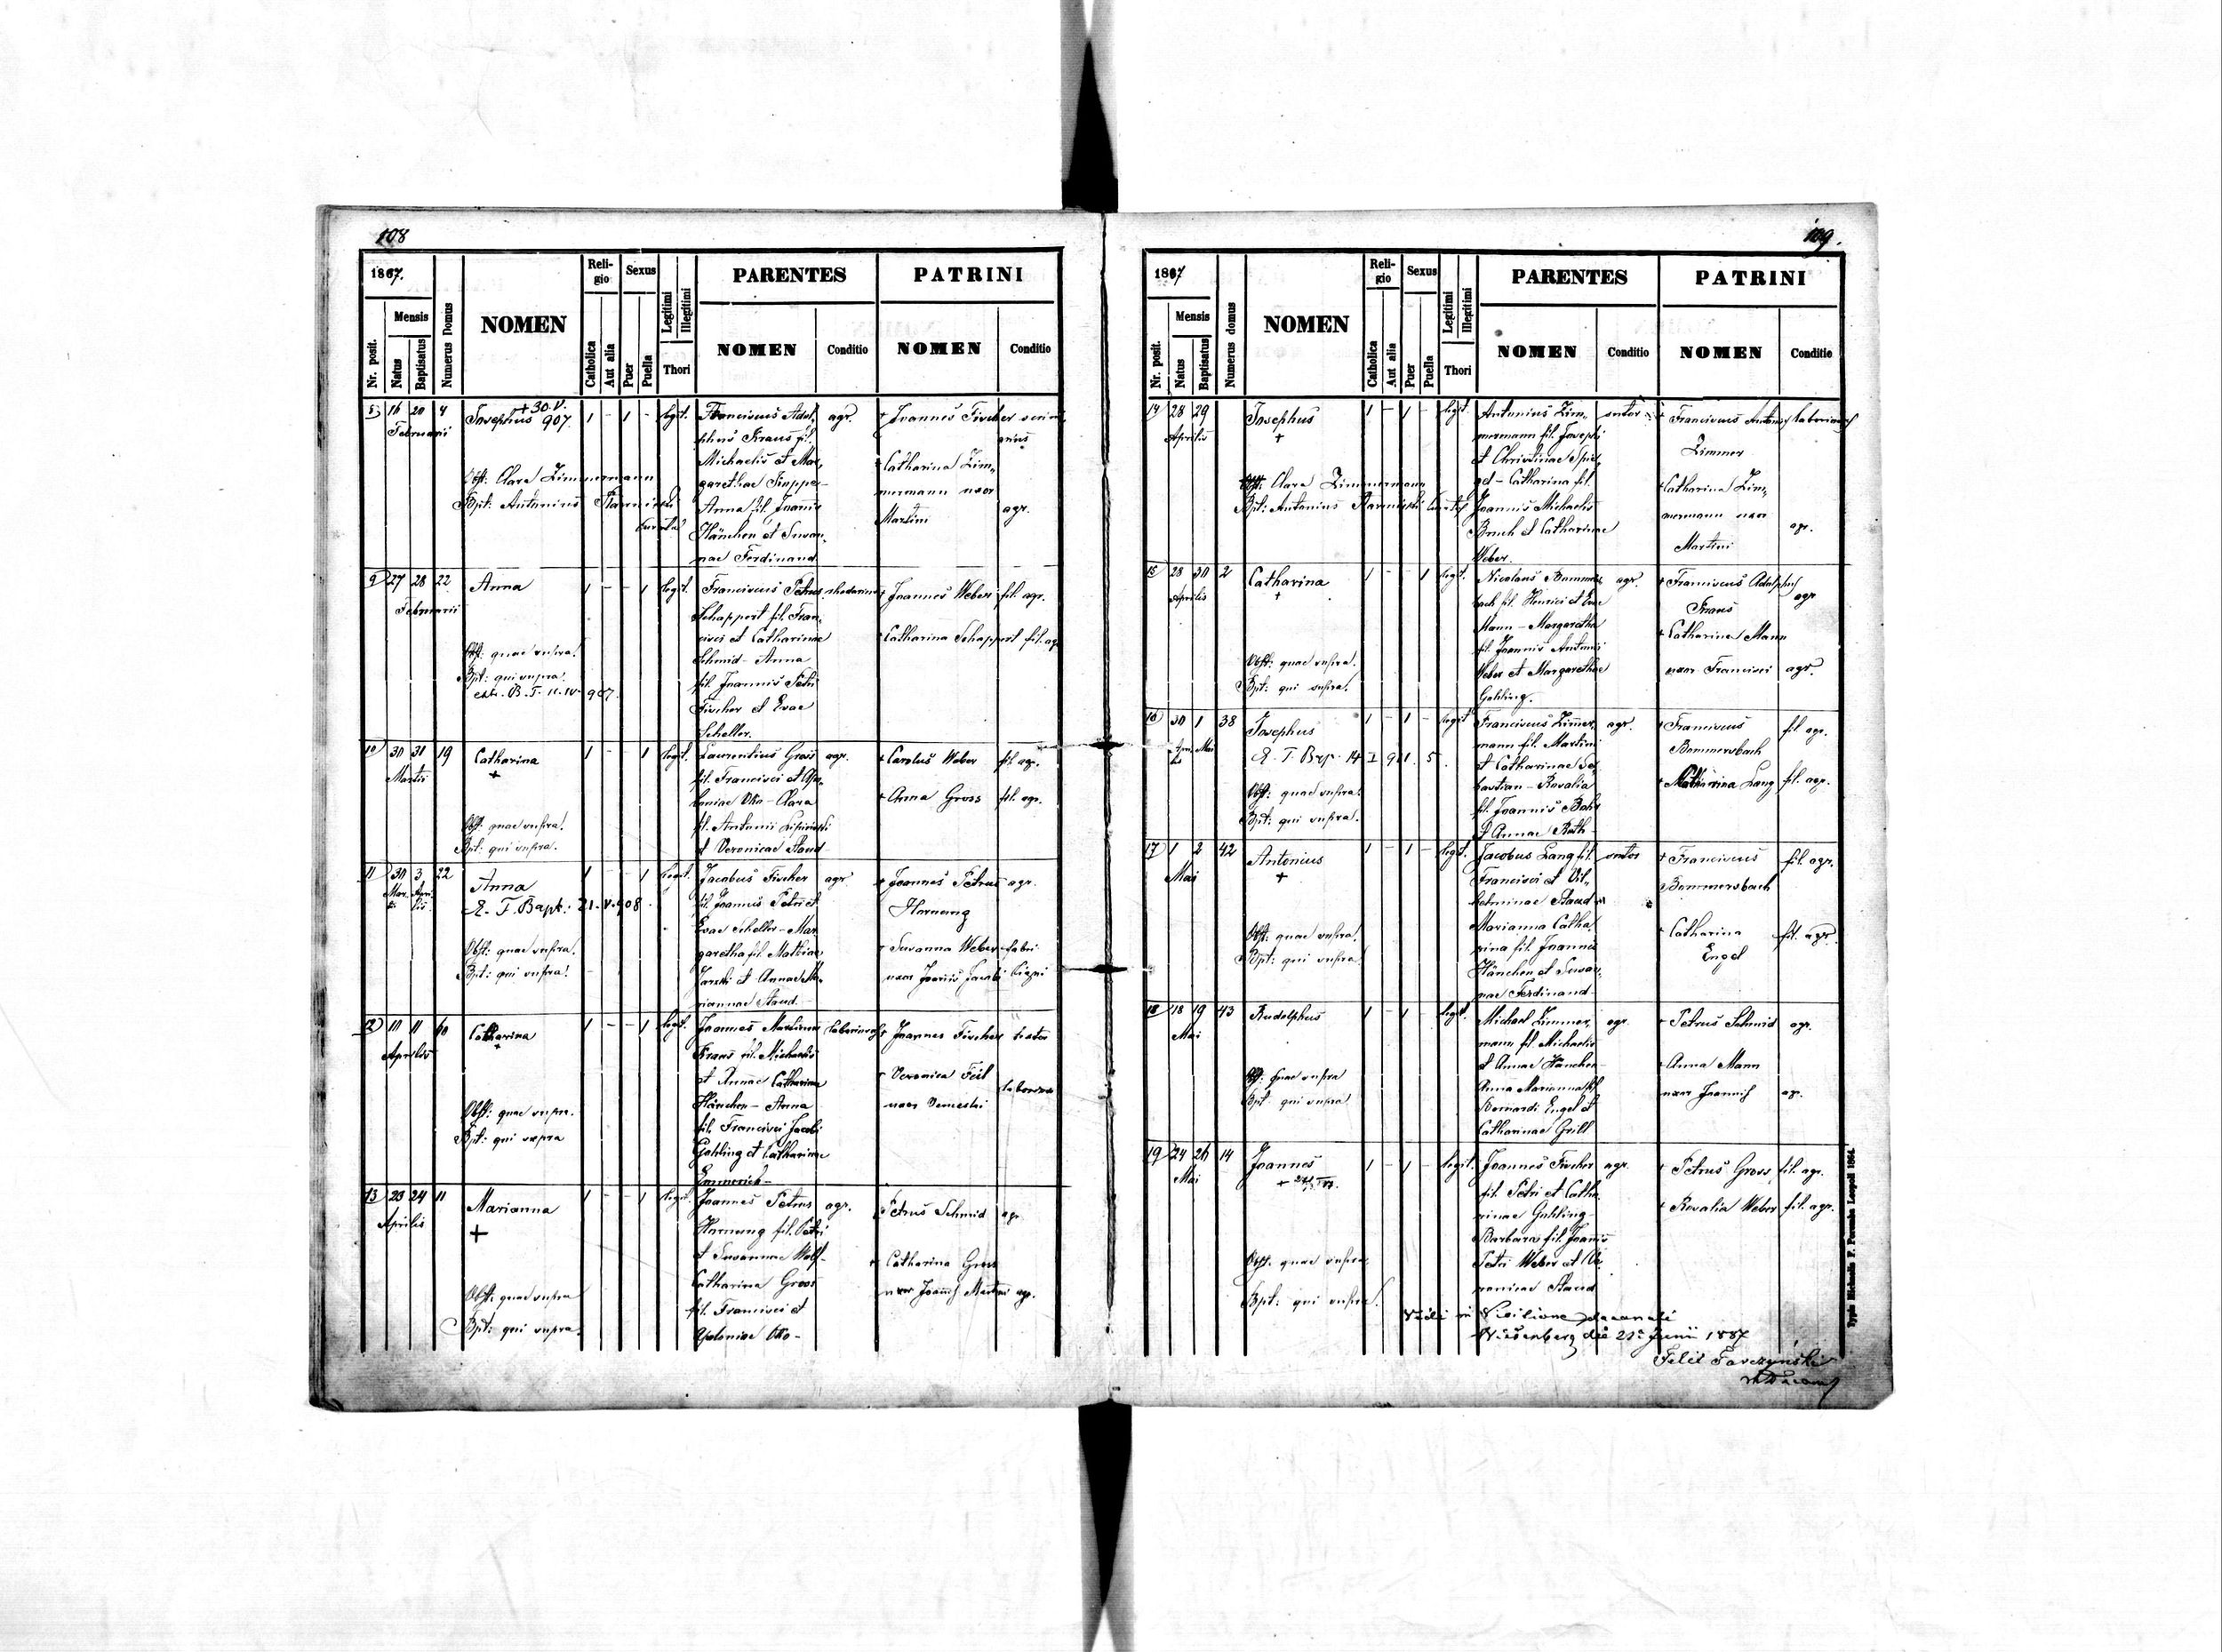 108
1887.
Nr. posit.
Mensis
Natus
Baptisatus
Numerus Domus
NOMEN
Religio
Catholica
Aut alia
Sexus
Puer
Puella
Legitimi
Illegitimi
Thori
PARENTES
NOMEN
Conditio
PATRINI
NOMEN
Conditio
8 16 20 4
Februarii
Josephus + 30.V. 907.
1 - 1 - legit.
Obst: Clara Zimmermann
Bpt: Antonius
Franciscus Adol,
phus Kraus fil.
Michaelis et Mar,
garethae
Anna fil. Joannis
Hänchen et Susan,
nae Ferdinand
agr.
+ Joannes Fischer
+ Catharina Zim,
mermann uxor
Martini
agr.
9 27 28 22
Februarii
Anna
1 - - 1 legit.
Obst: quae supra.
Bpt: qui supra.
extr. B. T. 11. IV. 907.
Franciscus Petrus
Schappert fil. Fran,
cisci et Catharinae
Schmid - Anna
fil. Joannis Petri
Fischer et Evae
Scheller.
rhedarius
+ Joannes Weber fil. agr.
+ Catharina Schappert fil. agr.
10 30 31 19
Martii
Catharina
+
1 - - 1 legit.
Obst: quae supra.
Bpt: qui supra.
Laurentius Gross
fil. Francisci et Apo,
loniae Otto - Clara
fil. Antonii
et Veronicae Staud
agr.
+ Carolus Weber fil. agr.
+ Anna Gross fil. agr.
11 30 3 22
Mar. Apri
tii lis
Anna
E. T. Bapt. 21. V. 908.
1 - - 1 legit.
Obst: quae supra.
Bpt: qui supra.
Jacobus Fischer
fil. Joannis Petri et
Evae Scheller - Mar,
garetha fil. Mathiae
Jarski et Annae Ma,
riannae Staud.
agr.
+ Joannes Petrus agr.
Hornung
+ Susanna Weber fabri
uxor Joannis Jacobi
12 10 11 40
Aprilis
Catharina
+
1 - - 1 legit.
Obst: quae supra.
Bpt: qui supra
Joannes Martinus
Kraus fil. Michaelis
et Annae Catharinae
Hänchen - Anna
fil. Francisci Jacobi
Gohling et Catharinae
Emmerich -
laborinus
+ Joannes Fischer
+ Veronica Feil
uxor
13 23 24 11
Aprilis
Marianna
+
1 - - 1 legit.
Obst: quae supra
Bpt: qui supra.
Joannes Petrus
Hornung fil. Petri
et Susannae Wolf -
Catharina Gross
fil. Francisci et
Apoloniae Otto -
agr.
Petrus Schmid agr.
+ Catharina Gross
uxor Joannis Martini agr.
109.
1887
Nr. posit.
Mensis
Natus
Baptisatus
Numerus domus
NOMEN
Religio
Catholica
Aut alia
Sexus
Puer
Puella
Legitimi
Illegitimi
Thori
PARENTES
NOMEN
Conditio
PATRINI
NOMEN
Conditio
14 28 29
Aprilis
Josephus
+
1 - 1 - legit.
Obst: Clara Zimmermann
Bpt: Antonius
Antonius Zim,
mermann fil. Josephi
et Christinae Spie,
gel - Catharina fil.
Joannis Michaelis
Bruch et Catharinae
Weber.
sutor
+ Franciscus Antonius
Zimmer
+ Catharina Zim,
mermann uxor
Martini
agr.
15 28 30 2
Aprilis
Catharina
+
1 - - 1 legit.
Obst: quae supra.
Bpt: qui supra.
Nicolaus Bommers,
bach fil. Henrici et Evae
Mann - Margaretha
fil. Joannis Antonii
Weber et Margarethae
Gohling.
agr.
+ Franciscus Adolphus
Kraus
agr
+ Catharina Mann
uxor Francisci agr.
16 30 1 38
Apri Mai
lis
Josephus
E. T. Bap. 14 I 911. 5.
1 - 1 - legit
Obst: quae supra.
Bpt: qui supra.
Franciscus Zimmer,
mann fil. Martini
et Catharinae Se,
bastian - Rosalia
fil. Joannis Bohr
et Annae Roth -
agr.
+ Franciscus fil agr.
Bommersbach
+ Catharina Lang fil. agr.
17 1 2 42
Mai
Antonius
+
1 - 1 - legit.
Obst: quae supra.
Bpt: qui supra
Jacobus Lang fil.
Francisci et Vil,
helminae Staud -
Marianna Catha,
rina fil. Joannis
Hänchen et Susan,
nae Ferdinand -
sutor
+ Franciscus fil. agr.
Bommersbach
+ Catharina fil. agr.
Engel
18 18 19 43
Mai
Rudolphus
1 - 1 - legit.
Obst: quae supra
Bpt: qui supra
Michael Zimmer,
mann fil. Michaelis
et Annae Hänchen -
Anna Marianna fil.
Bernardi Engel et
Catharinae Grill
agr.
+ Petrus Schmid agr.
+ Anna Mann
uxor Joannis agr.
19 24 26 14
Mai
Joannes
+
1 - 1 - legit.
Obst: quae supra,
Bpt: qui supra.
Joannes Fischer
fil. Petri et Catha,
rinae Gohling -
Barbara fil. Joannis
Petri Weber et Ve,
ronicae Staud
agr.
+ Petrus Gross fil. agr.
+ Rosalia Weber fil. agr.
Vidi in Visitione decanali
Wiesenberg die 21 Junii 1887
Typis Michaelis F. Poremba Leopoli 1864.